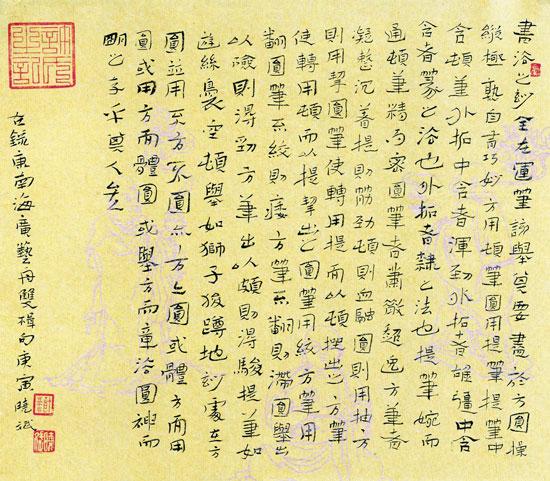 書法之妙全在運筆該舉其要盡於方圓操
縱極熟自有巧妙方用頓筆圓用提筆提筆中
含頓筆外拓中含者渾勁外拓者雄彊中含
含者篆之法也外拓者隸之法也提筆婉而
通頓筆精而密圓筆者蕭散超逸方筆者
凝整沉著提則筋勁頓則血融圓則用抽方
則用挈圓筆使轉用提而以頓挫出之方筆
使轉用頓而以提挈出之圓筆用絞方筆用
翻圓筆不絞則痿方筆不翻則滯圓筆出
以險則得勁方筆出以頗則得駿提筆如
遊絲裊空頓筆如獅子狻蹲地妙處在方
圓並用不方不圓亦方亦圓或體方而用
圓或用方而體圓或筆方而章法圓神而
明之存乎其人矣
右錄康南海廣藝舟雙楫句庚寅曉斌